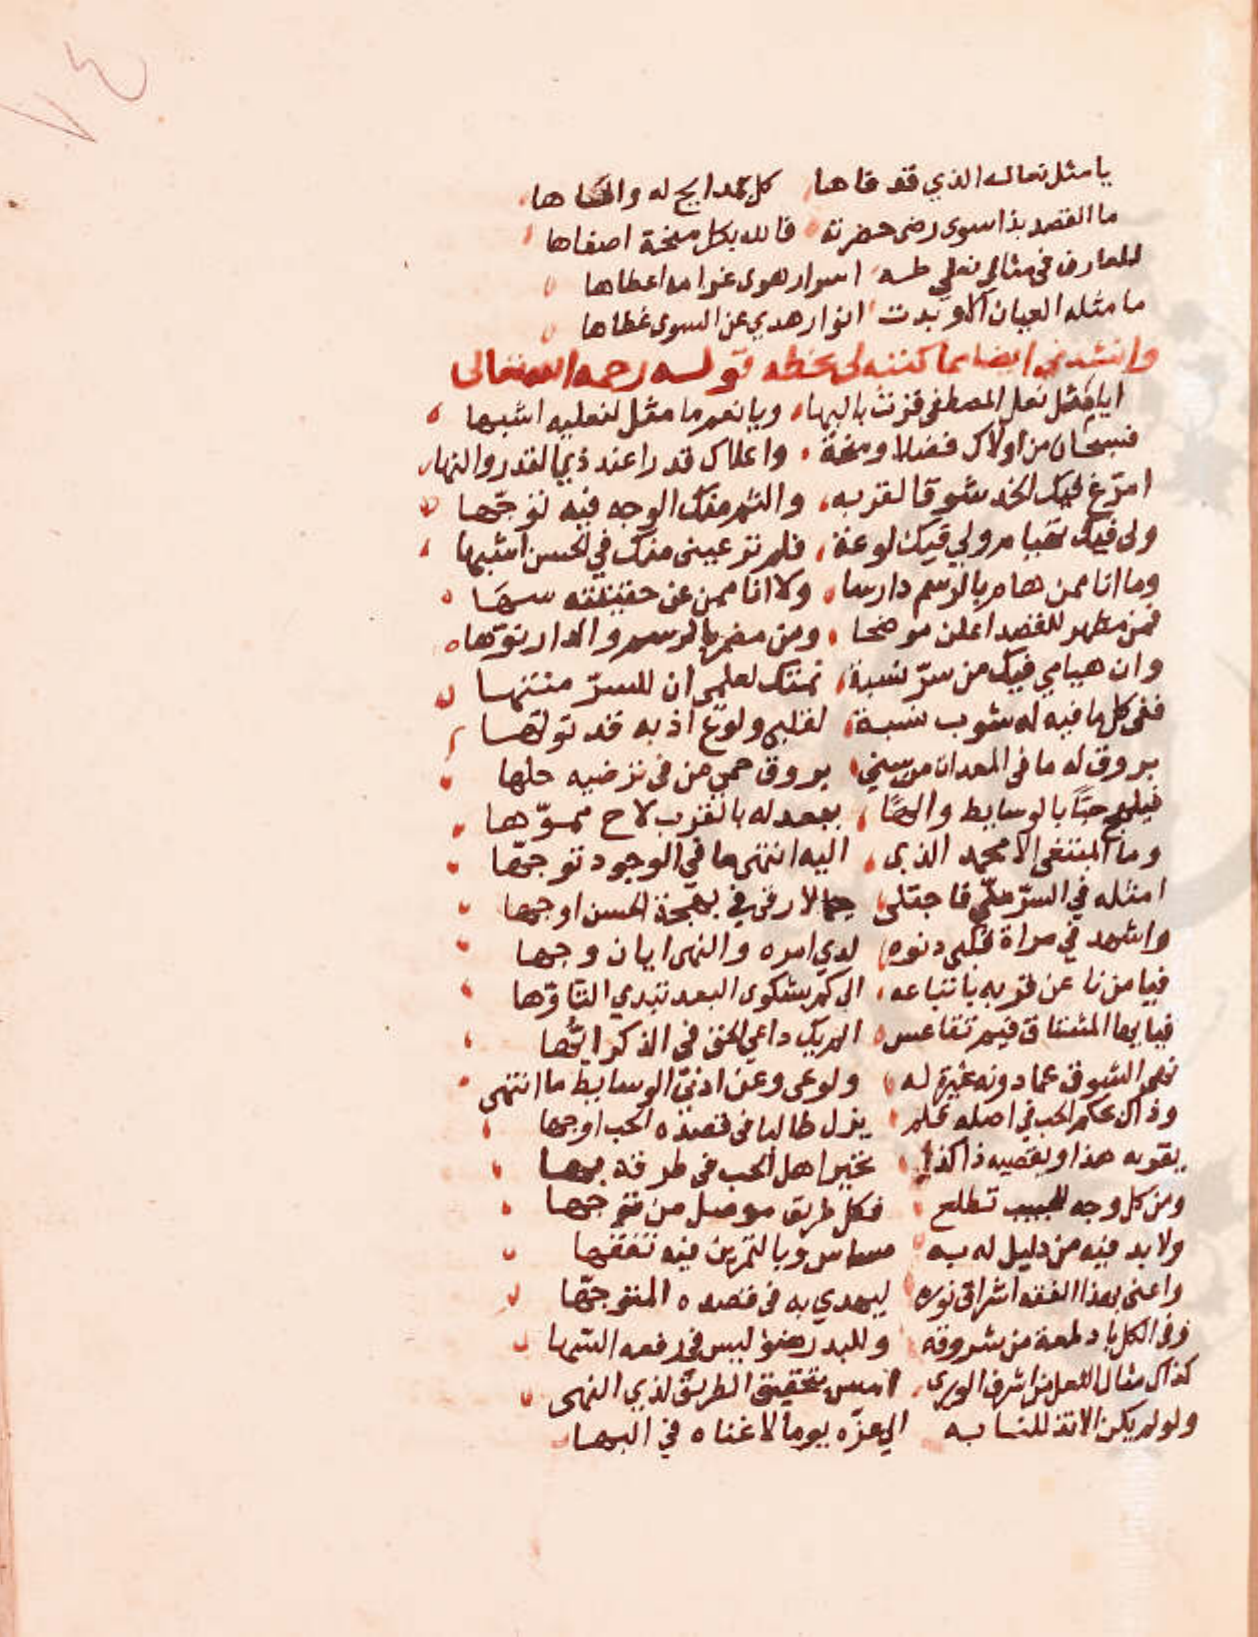 ٧٤
يا مثل نعاله الذي قد فاها كل حمد ابح له والحاها
ما القصد بذا سوى رضى حضرته فالله بكل منحة اصفاها
للعارف في مثال نعلي طه اسرار هوى غرامه اعطاها
ما مثله العيان الا وبدت انوار هدي عن السوى غطاها
وانشدني ايضا مما كتبه لي بخطه قوله رحمه الله تعالى
ايا مثل نعل المصطفى فزت بالبها ويا نعم ما مثل لنعليه اشبها
فسبحان من اولاك فضلا ومنحة واعلاك قدرا عند ذي القدر والنها
امرغ فيك الخد شوقا لقربه والثم منك الوجه فيه توجها
ولي فيك تهيام ولي فيك لوعة فلم تر عيني منك في الحسن اشبها
وما انا ممن هام بالرسم دارسا ولا انا ممن عن حقيقته سها
فمن مظهر للقصد اعلن موضحا ومن مضمر بالرسم والدار نوها
وان هيامي فيك من سر نسبة تمتك لعلمي ان للسر منتها
ففي كل ما فيه له شوب نسبة لقلبي ولوع اذ به قد تولها
يروق له ما في المعدات من سنى بروق حمى من في ترضيه حلها
فيلهج حبا بالوسايط والها ببعد له بالقرب لاح مموها
وما المبتغى الا محمد الذي اليه انتهى ما في الوجود توجها
امثله في السر مني فاجتلى جمالا رقى في بهجة الحسن اوجها
واشهد في مراة فكري دنوه لدي امره والنهى ايان وجها
فيا من نا عن قربه باتباعه الى كم بشكوى البعد تبدي التاوها
فيا ايها المشتاق فيم تقاعس اليك داعي الحق في الذكر ايها
نهى الشوق عما دونه غيرة له ولوعى وعن ادنى الوسايط ما انتهى
وذاك بحكم الحب في اصله فلم يزل طالبا في قصده الحب اوجها
يقربه هذا ويقصيه ذا كذا بخير اهل الحب في طرفه بها
ومن كل وجه للحبيب تطلع فكل طريق موصل من توجها
ولا بد فيه من دليل له به مساس وبالتمرين فيه تفقها
واعنى بهذا الفقه اشراق نوره ليهدي به في قصده المتوجها
وفي الكل باد لمعة من شروقه وللبدر ضوء ليس في رفعه السها
كذاك مثال النعل من اشرف الورى امس بتحقيق الطريق لذي النهى
ولو لم يكن الا تذللنا به الى عزه يوما لاغناه في البها